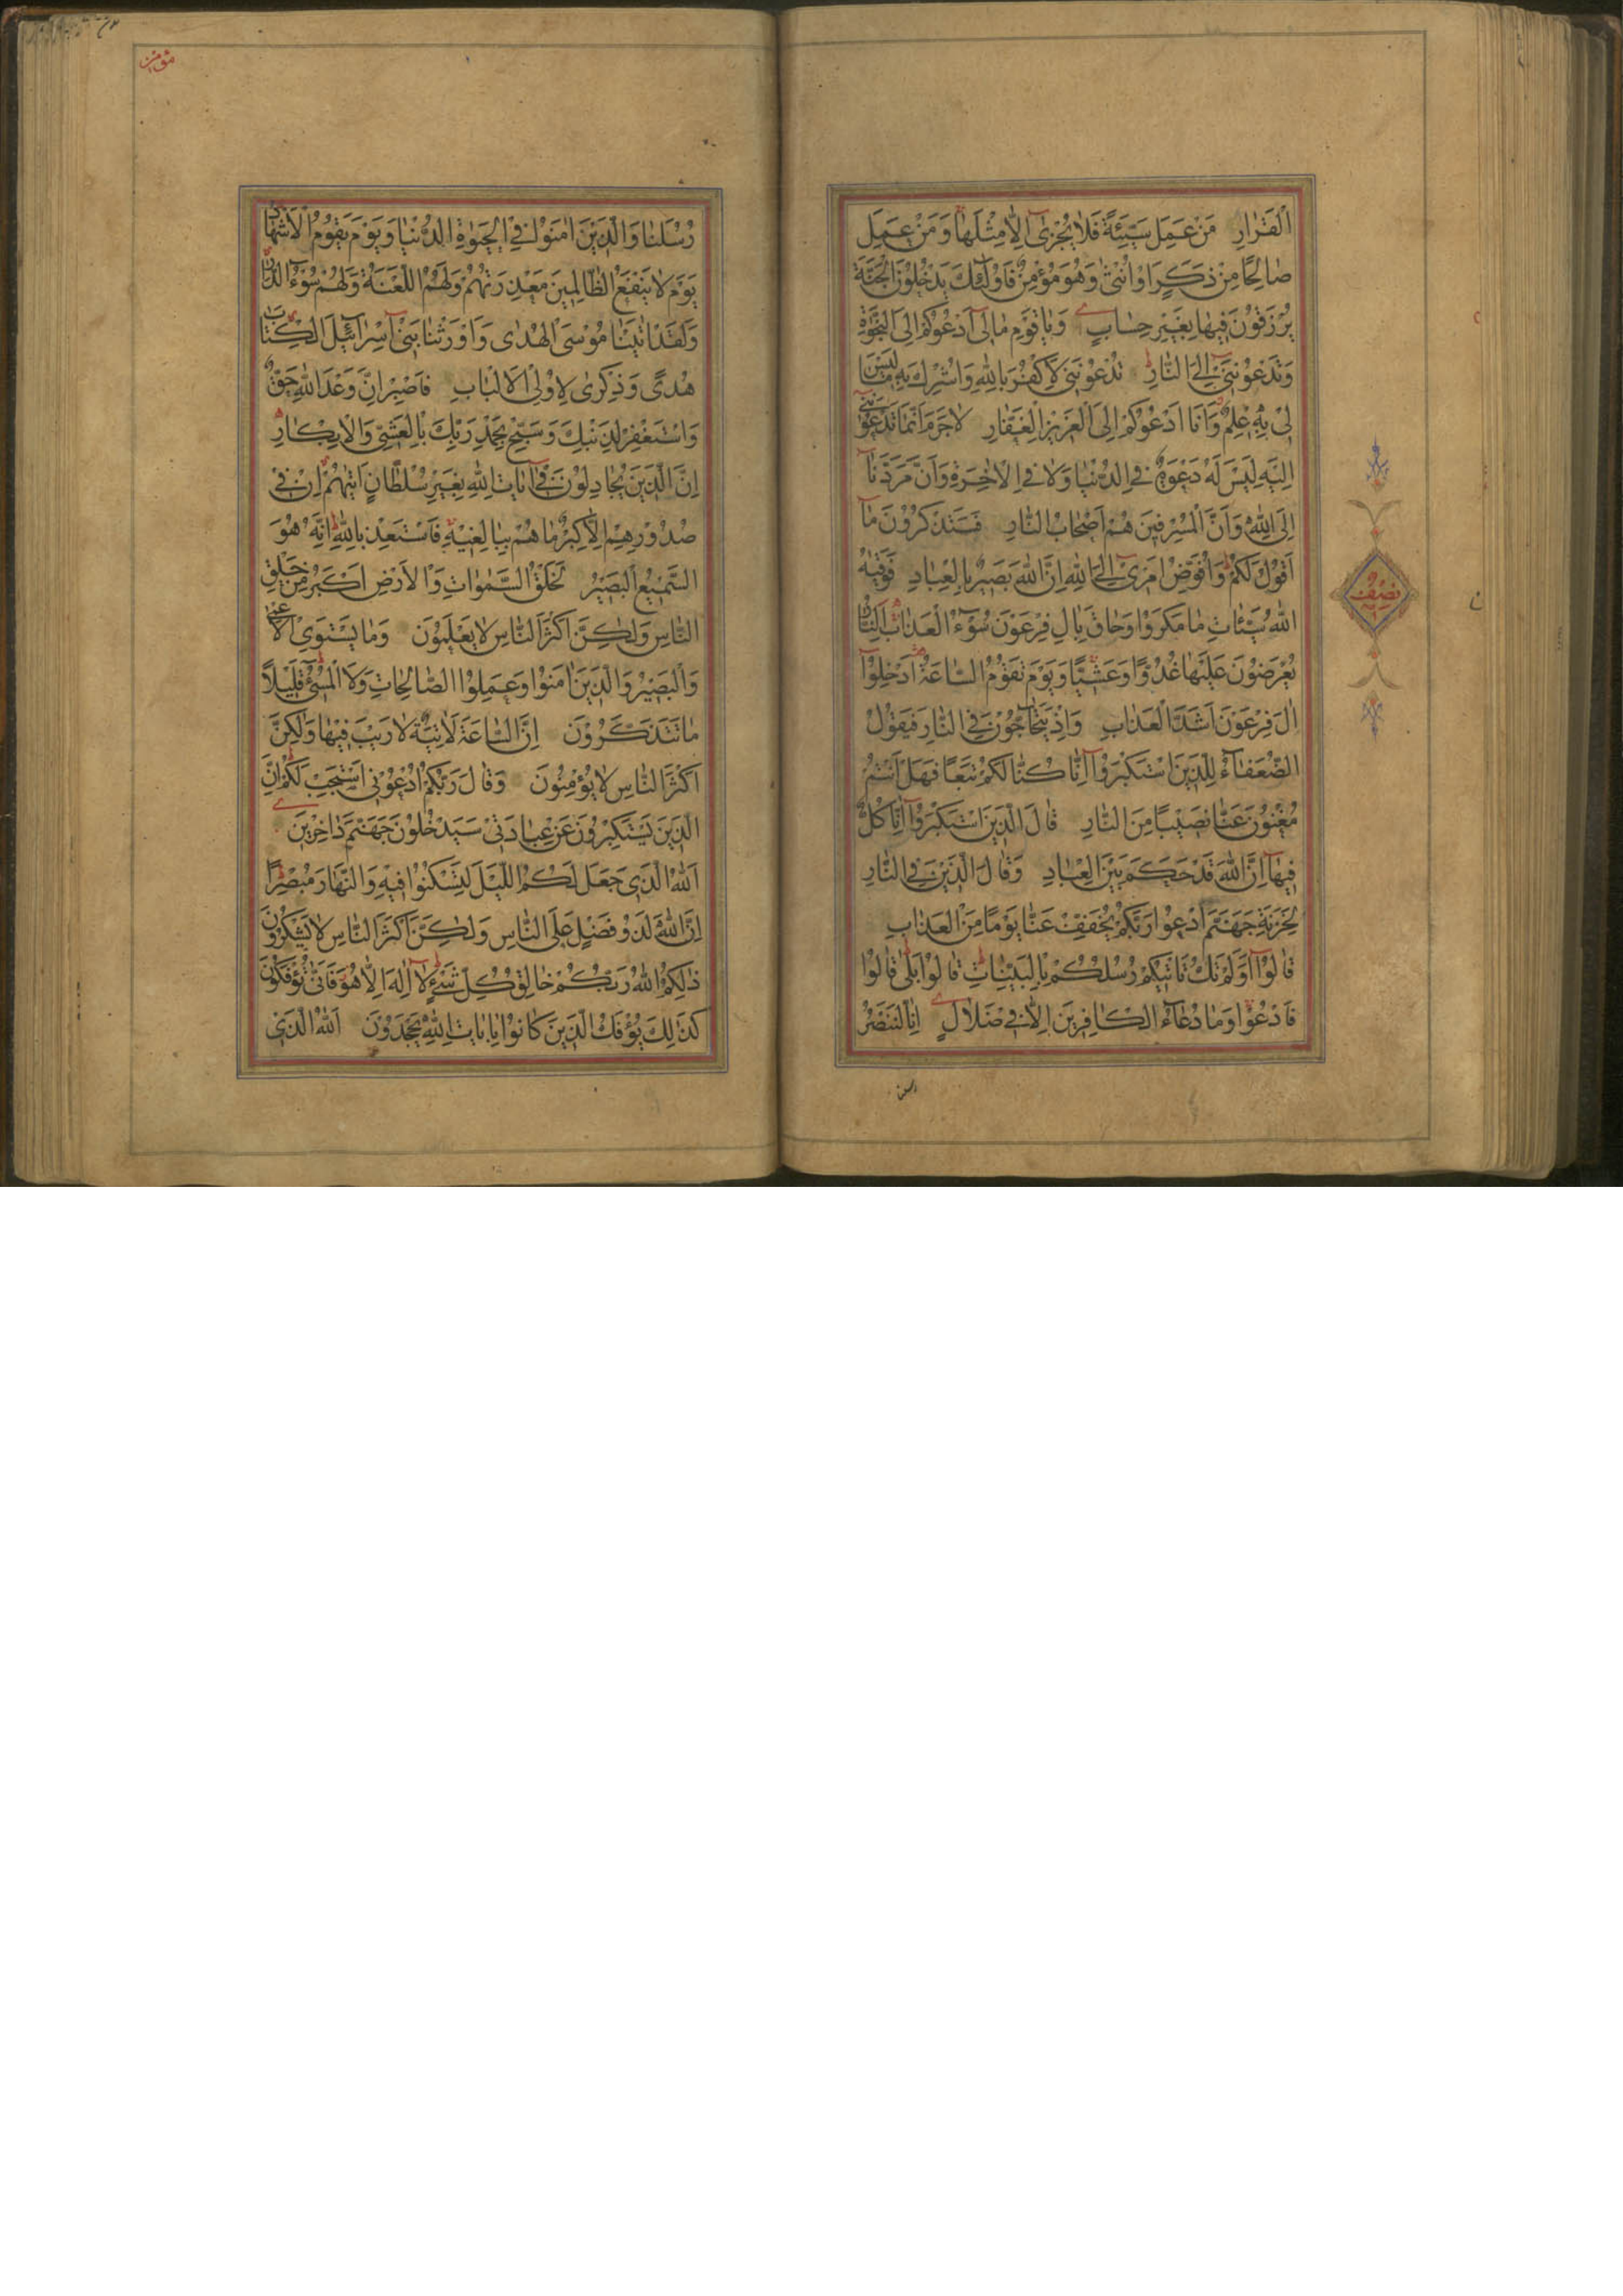 اَلْقَرٰارِ مَنْ عَمِلَ سَيِّئَةً فَلٰا يُجْزىٰٓ اِلّٰا مِثْلَهٰا وَ مَنْ عَمِلَ
صٰالِحًا مِنْ ذَكَرٍ اَوْ اُنْثىٰ وَ هُوَ مُؤْمِنٌ فَاُولٰٓئِكَ يَدْخُلُونَ الْجَنَّةَ
يُرْزَقُونَ فيهٰا بِغَيْرِ حِسٰابٍ وَ يٰا قَوْمِ مٰا لىٓ اَدْعُوكُمْ اِلَى النَّجٰوةِ
وَ تَدْعُونَنىٓ اِلَى النّٰارِ تَدْعُونَنى لِاَكْفُرَ بِاللّٰهِ وَ اُشْرِكَ بِهٖ مٰا لَيْسَ
لى بِهٖ عِلْمٌ وَ اَنَا اَدْعُوكُمْ اِلَى الْعَزيزِ الْغَفّٰارِ لٰا جَرَمَ اَنَّمٰا تَدْعُونَنىٓ
اِلَيْهِ لَيْسَ لَهُ دَعْوَةٌ فِى الدُّنْيٰا وَ لٰا فِى الْاٰخِرَةِ وَ اَنَّ مَرَدَّنٰآ
اِلَى اللّٰهِ وَ اَنَّ الْمُسْرِفينَ هُمْ اَصْحٰابُ النّٰارِ فَسَتَذْكُرُونَ مٰآ
اَقُولُ لَكُمْ وَ اُفَوِّضُ اَمْرىٓ اِلَى اللّٰهِ اِنَّ اللّٰهَ بَصيرٌ بِالْعِبٰادِ فَوَقٰيهُ
اللّٰهُ سَيِّئٰاتِ مٰا مَكَرُوا وَ حٰاقَ بِاٰلِ فِرْعَوْنَ سُوٓءُ الْعَذٰابِ اَلنّٰارُ
يُعْرَضُونَ عَلَيْهٰا غُدُوًّا وَ عَشِيًّا وَ يَوْمَ تَقُومُ السّٰاعَةُ اَدْخِلُوٓا
اٰلَ فِرْعَوْنَ اَشَدَّ الْعَذٰابِ وَ اِذْ يَتَحٰآجُّونَ فِى النّٰارِ فَيَقُولُ
الضُّعَفٰٓاءُ لِلَّذينَ اسْتَكْبَرُوٓا اِنّٰا كُنّٰا لَكُمْ تَبَعًا فَهَلْ اَنْتُمْ
مُغْنُونَ عَنّٰا نَصيبًا مِنَ النّٰارِ قٰالَ الَّذينَ اسْتَكْبَرُوٓا اِنّٰا كُلٌّ
فيهٰآ اِنَّ اللّٰهَ قَدْ حَكَمَ بَيْنَ الْعِبٰادِ وَ قٰالَ الَّذينَ فِى النّٰارِ
لِخَزَنَةِ جَهَنَّمَ ادْعُوا رَبَّكُمْ يُخَفِّفْ عَنّٰا يَوْمًا مِنَ الْعَذٰابِ
قٰالُوٓا اَوَ لَمْ تَكُ تَاْتيكُمْ رُسُلُكُمْ بِالْبَيِّنٰاتِ قٰالُوا بَلىٰ قٰالُوا
فَادْعُوا وَ مٰا دُعٰٓاءُ الْكٰافِرينَ اِلّٰا فى ضَلٰالٍ اِنّٰا لَنَنْصُرُ
نصف
مؤمن
رُسُلَنٰا وَ الَّذينَ اٰمَنُوا فِى الْحَيٰوةِ الدُّنْيٰا وَ يَوْمَ يَقُومُ الْاَشْهٰادُ
يَوْمَ لٰا يَنْفَعُ الظّٰالِمينَ مَعْذِرَتُهُمْ وَ لَهُمُ اللَّعْنَةُ وَ لَهُمْ سُوٓءُ الدّٰارِ
وَ لَقَدْ اٰتَيْنٰا مُوسَى الْهُدىٰ وَ اَوْرَثْنٰا بَنىٓ اِسْرٰآئيلَ الْكِتٰابَ
هُدًى وَ ذِكْرىٰ لِاُولِى الْاَلْبٰابِ فَاصْبِرْ اِنَّ وَعْدَ اللّٰهِ حَقٌّ
وَ اسْتَغْفِرْ لِذَنْبِكَ وَ سَبِّحْ بِحَمْدِ رَبِّكَ بِالْعَشِىِّ وَ الْاِبْكٰارِ
اِنَّ الَّذينَ يُجٰادِلُونَ فىٓ اٰيٰاتِ اللّٰهِ بِغَيْرِ سُلْطٰانٍ اَتٰيهُمْ اِنْ فى
صُدُورِهِمْ اِلّٰا كِبْرٌ مٰا هُمْ بِبٰالِغيهِ فَاسْتَعِذْ بِاللّٰهِ اِنَّهُ هُوَ
السَّميعُ الْبَصيرُ لَخَلْقُ السَّمٰوٰاتِ وَ الْاَرْضِ اَكْبَرُ مِنْ خَلْقِ
النّٰاسِ وَ لٰكِنَّ اَكْثَرَ النّٰاسِ لٰا يَعْلَمُونَ وَ مٰا يَسْتَوِى الْاَعْمىٰ
وَ الْبَصيرُ وَ الَّذينَ اٰمَنُوا وَ عَمِلُوا الصّٰالِحٰاتِ وَ لَا الْمُسىٓءُ قَليلًا
مٰا تَتَذَكَّرُونَ اِنَّ السّٰاعَةَ لَاٰتِيَةٌ لٰا رَيْبَ فيهٰا وَ لٰكِنَّ
اَكْثَرَ النّٰاسِ لٰا يُؤْمِنُونَ وَ قٰالَ رَبُّكُمُ ادْعُونى اَسْتَجِبْ لَكُمْ اِنَّ
الَّذينَ يَسْتَكْبِرُونَ عَنْ عِبٰادَتى سَيَدْخُلُونَ جَهَنَّمَ دٰاخِرينَ
اَللّٰهُ الَّذى جَعَلَ لَكُمُ اللَّيْلَ لِتَسْكُنُوا فيهِ وَ النَّهٰارَ مُبْصِرًا
اِنَّ اللّٰهَ لَذُو فَضْلٍ عَلَى النّٰاسِ وَ لٰكِنَّ اَكْثَرَ النّٰاسِ لٰا يَشْكُرُونَ
ذٰلِكُمُ اللّٰهُ رَبُّكُمْ خٰالِقُ كُلِّ شَىْءٍ لٰآ اِلٰهَ اِلّٰا هُوَ فَاَنّٰى تُؤْفَكُونَ
كَذٰلِكَ يُؤْفَكُ الَّذينَ كٰانُوا بِاٰيٰاتِ اللّٰهِ يَجْحَدُونَ اَللّٰهُ الَّذى